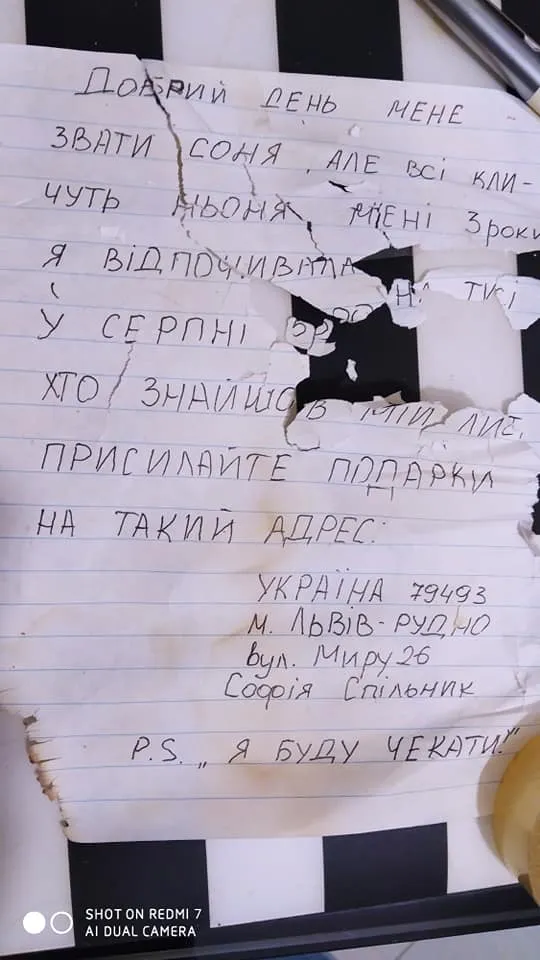 ДОБРИЙ ДЕНЬ МЕНЕ
ЗВАТИ СОНЯ, АЛЕ ВСІ КЛИ-
ЧУТЬ НЬОНЯ МЕНІ 3 роки
Я ВІДПОЧИВАЛА
У СЕРПНІ
ХТО ЗНАЙШОВ МІЙ ЛИС
ПРИСИЛАЙТЕ ПОДАРКИ
НА ТАКИЙ АДРЕС:
УКРАЇНА 79493
м. ЛЬВІВ-РУДНО
вул. Миру 26
Софія Спільник
P.S. „Я БУДУ ЧЕКАТИ!"
SHOT ON REDMI 7
AI DUAL CAMERA